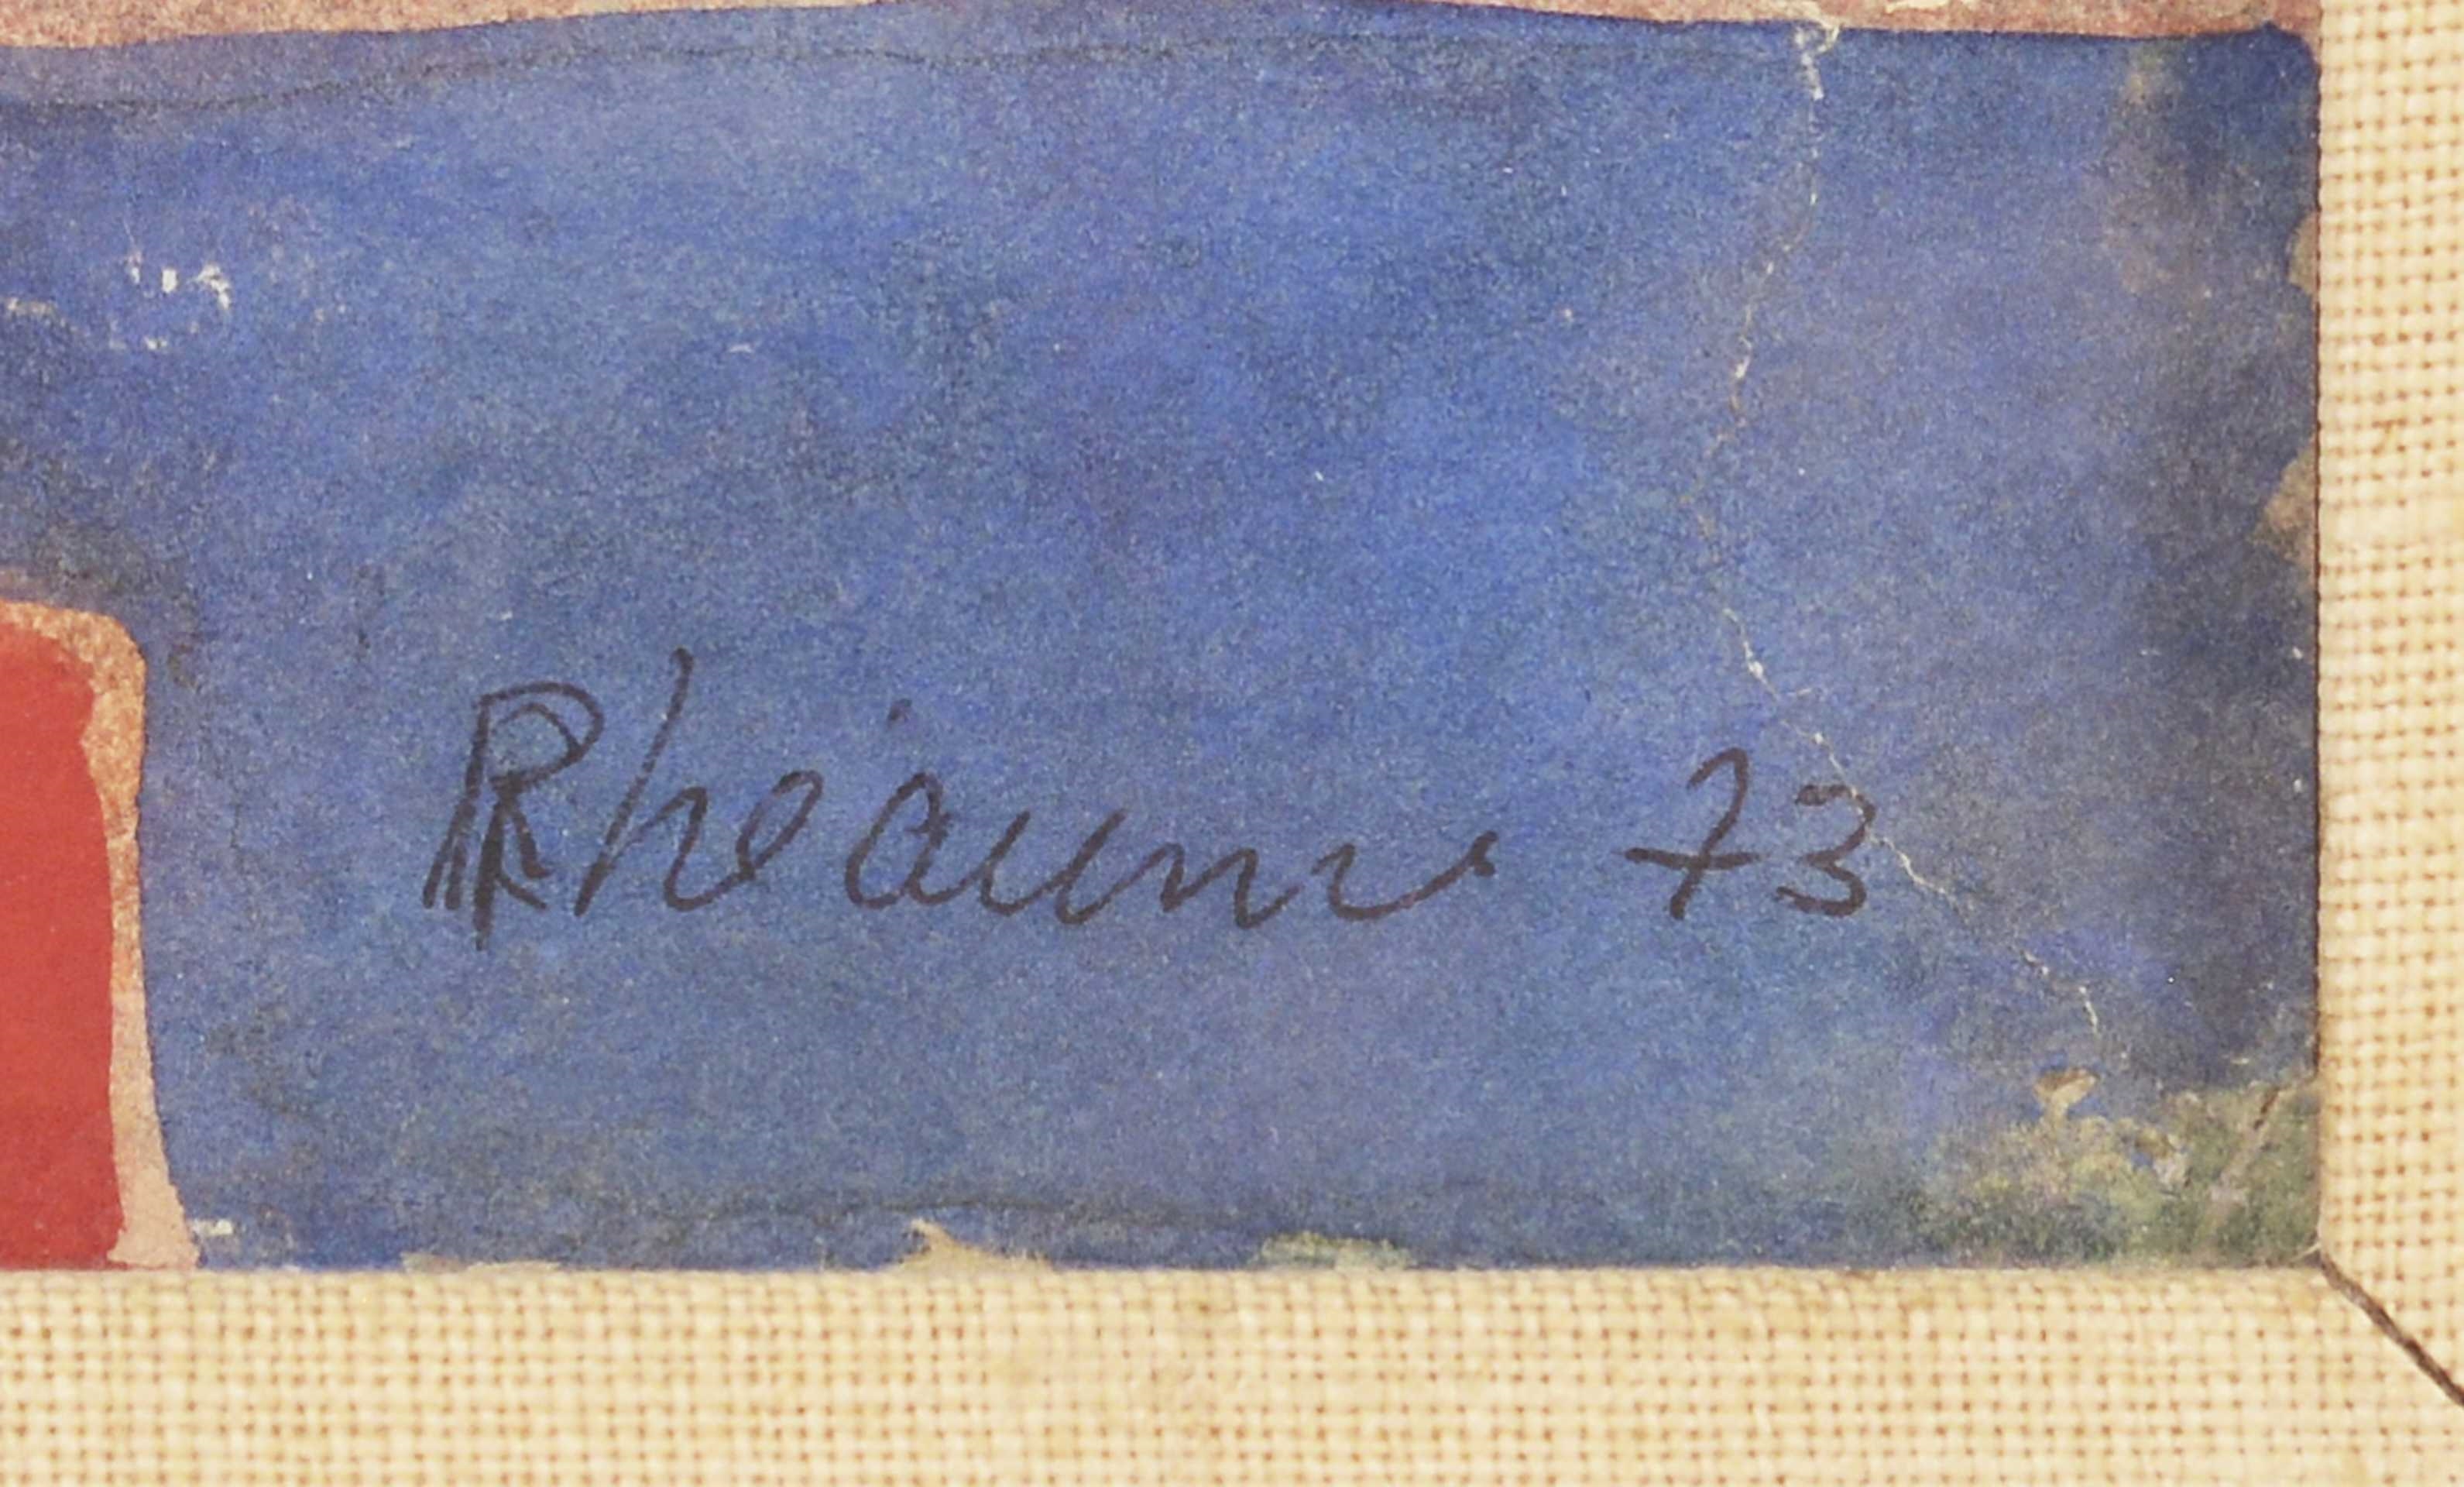 Rhéaume 73